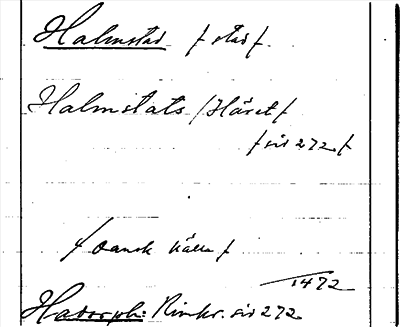 Halmstad /stad/.
Halmstats /Häret/
/sid 272./
/Dansk källa/
1472
Hadorph: Rimkr. sid 272